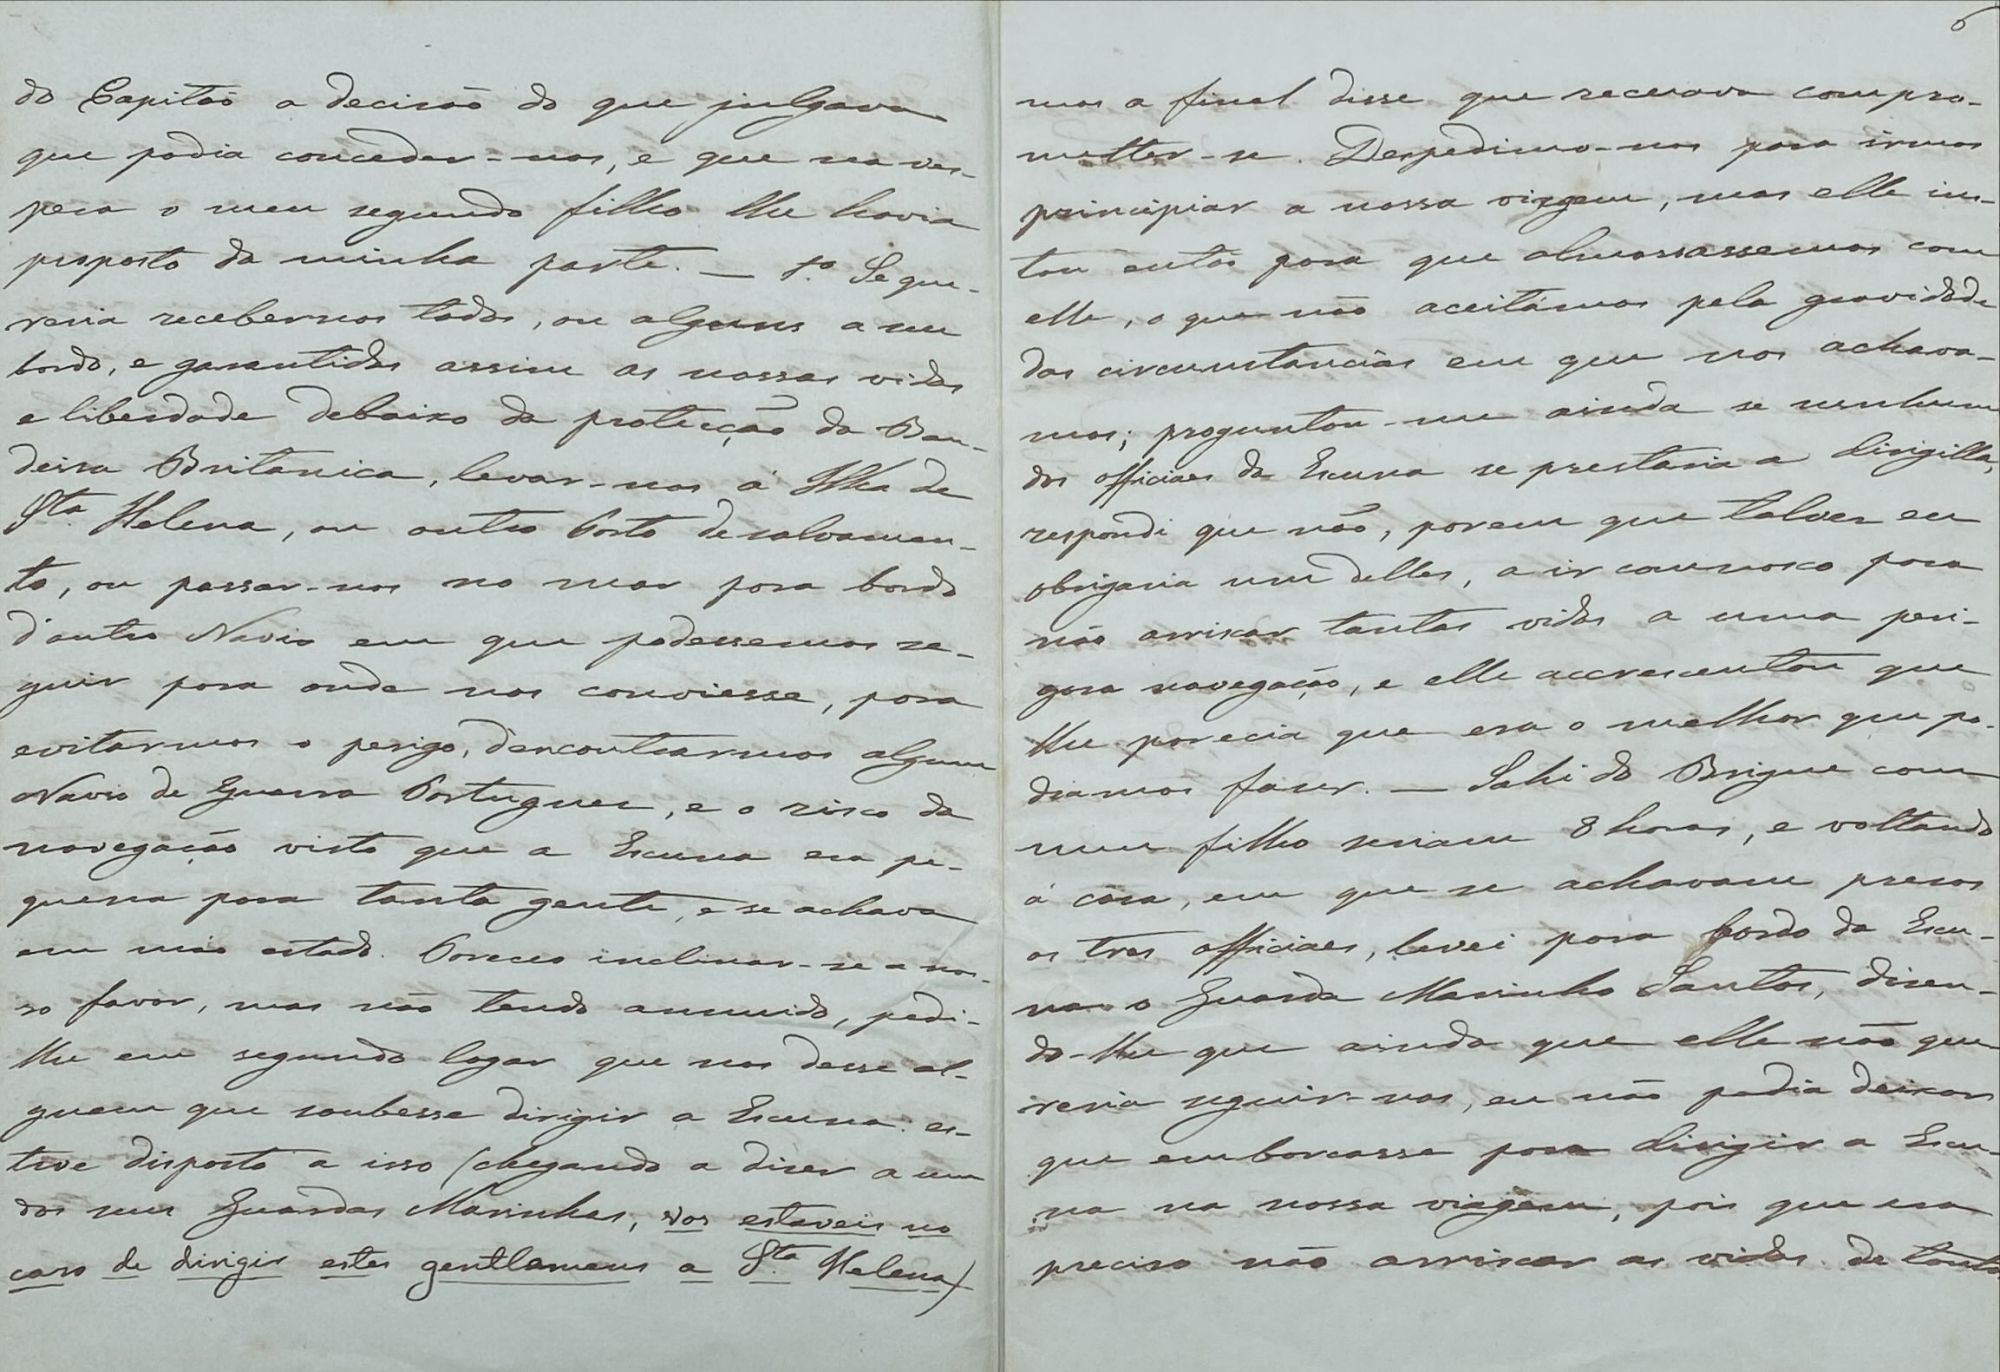 do Capitão a decisão do que julgava
que podia conceder-nos, e que na ves-
pera o meu segundo filho lhe havia
proposto da minha parte. — 1.º Se que-
reria recebernos todos, ou alguns a seu
bordo, e garantidas assim as nossas vidas
e liberdade debaixo da protecção da Ban-
deira Britanica, levar-nos á Ilha de
Sta Helena, ou outro Porto de salvamen-
to, ou passar-nos no mar para bordo
d'outro Navio em que podessemos se-
guir para onde nos conviesse, para
evitarmos o perigo, d'encontrarmos algum
Navio de Guerra Portuguez, e o risco da
navegação visto que a Escuna era pe-
quena para tanta gente, e se achava
em máo estado. Pareceo inclinar-se a nos-
so favor, mas não tendo annuido, pedi-
lhe em segundo logar que nos desse al-
guem que soubesse dirigir a Escuna: es-
teve disposto a isso (chegando a dizer a um
dos seus Guardas Marinhas, vos estaveis no
caso de dirigir estes gentlemens a Sta Helena)
6
mas a final disse que receiava compro-
metter-se. Despedimo-nos para irmos
principiar a nossa viagem, mas elle ins-
tou então para que almossassemos com
elle, o que não aceitámos pela gravidade
das circunstancias em que nos achava-
mos; proguntou-me ainda se nenhum
dos officiaes da Escuna se prestaria a dirigilla,
respondi que não, porem que talvez eu
obrigaria um delles, a ir comnosco para
não arriscar tantas vidas a uma peri-
gosa navegação, e elle accrescentou que
lhe parecia que era o melhor que po-
diamos fazer. — Sahi do Brigue com
meu filho seriam 8 horas, e voltando
á casa, em que se achavam presos
os tres officiaes, levei para bordo da Escu-
na o Guarda Marinha Santos, dizen-
do-lhe que ainda que elle não que-
reria seguir-nos, eu não podia deixar
que embarcasse para dirigir a Escu-
na na nossa viagem, pois que era
preciso não arriscar as vidas de tanta